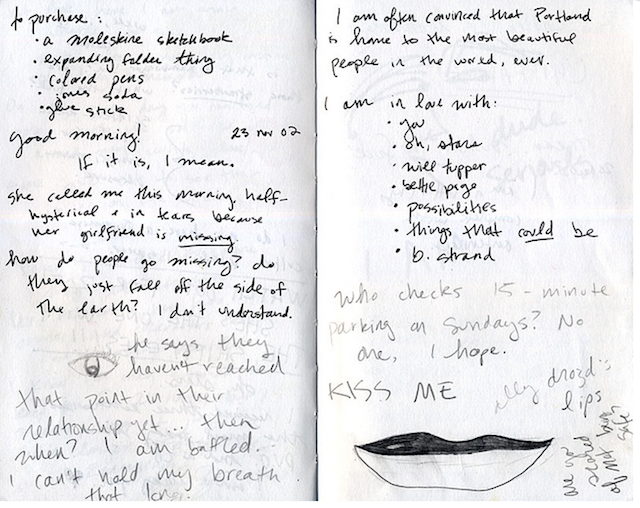 to purchase:
• a moleskine sketchbook
• expanding folder thing
• colored pens
• jones soda
• glue stick
Good morning! 23 nov 02
If it is, I mean.
she called me this morning, half-
hysterical + in tears because
her girlfriend is missing.
how do people go missing? do
they just fall off the side of
the earth? I don't understand.
he says they
haven't reached
that point in their
relationship yet... then
when? I am baffled.
I can't hold my breath
that long.
I am often convinced that Portland
is home to the most beautiful
people in the world, ever.
I am in love with:
• you
• oh, stars
• will tupper
• bettie page
• possibilities
• things that could be
• b. strand
Who checks 15-minute
parking on Sundays? No
one, I hope.
KISS ME
elly drozd's
lips
we're so
scared
of not being
safe